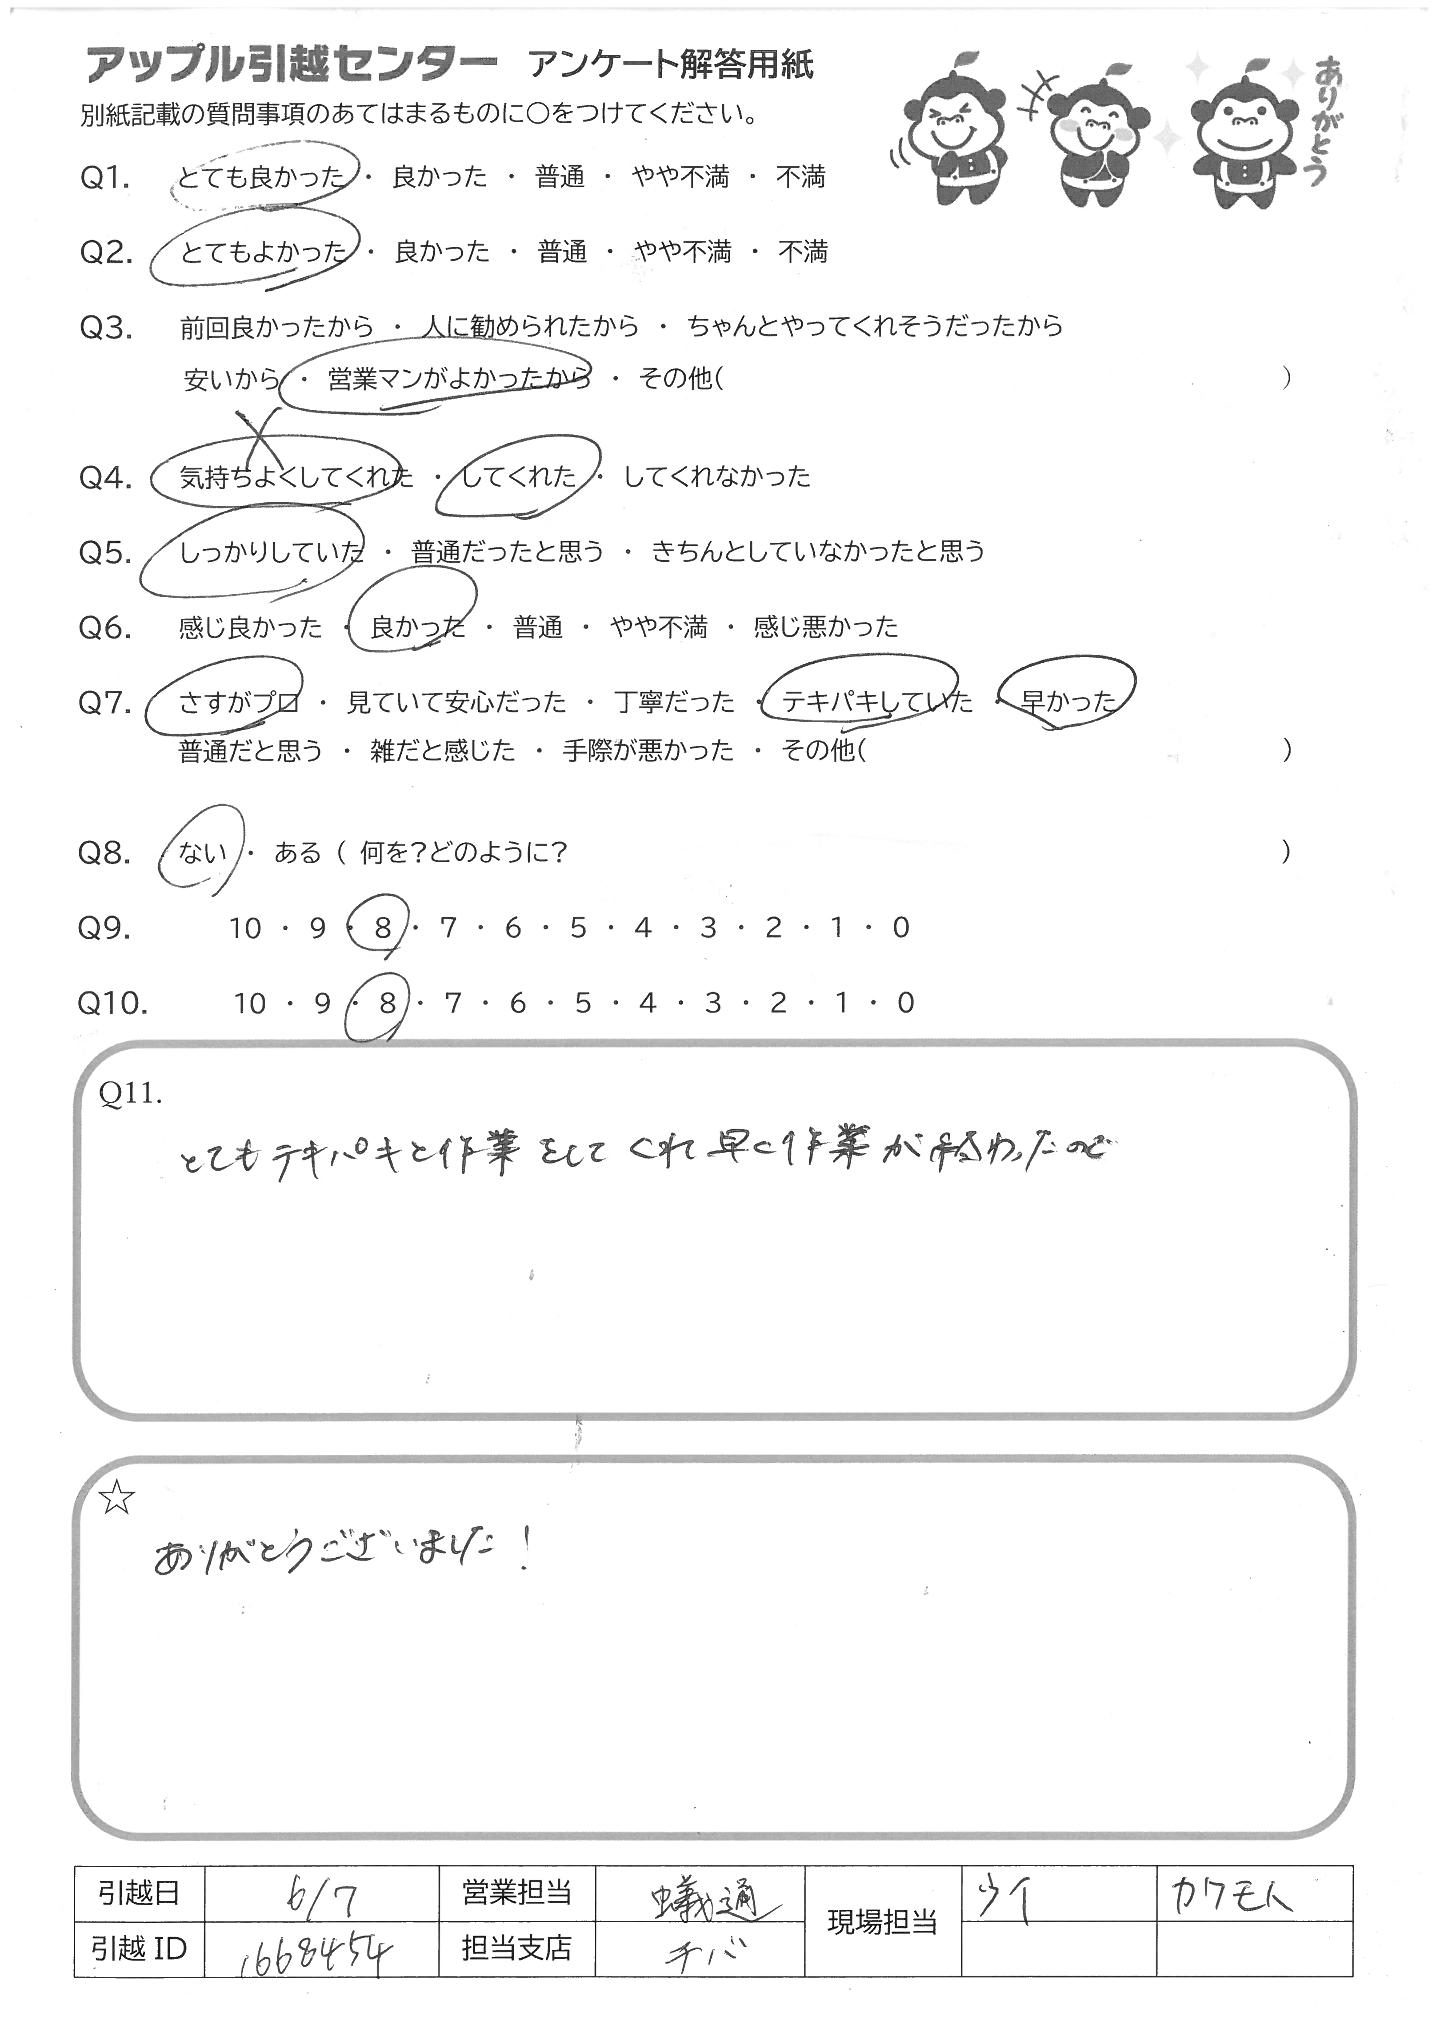 アップル引越センター アンケート解答用紙
ありがとう
別紙記載の質問事項のあてはまるものに〇をつけてください。
Q1. とても良かった ・ 良かった ・ 普通 ・ やや不満 ・ 不満
Q2. とてもよかった ・ 良かった ・ 普通 ・ やや不満 ・ 不満
Q3. 前回良かったから ・ 人に勧められたから ・ ちゃんとやってくれそうだったから
安いから ・ 営業マンがよかったから ・ その他( )
Q4. 気持ちよくしてくれた ・ してくれた ・ してくれなかった
Q5. しっかりしていた ・ 普通だったと思う ・ きちんとしていなかったと思う
Q6. 感じ良かった ・ 良かった ・ 普通 ・ やや不満 ・ 感じ悪かった
Q7. さすがプロ ・ 見ていて安心だった ・ 丁寧だった ・ テキパキしていた ・ 早かった
普通だと思う ・ 雑だと感じた ・ 手際が悪かった ・ その他( )
Q8. ない ・ ある ( 何を?どのように? )
Q9. 10 ・ 9 ・ 8 ・ 7 ・ 6 ・ 5 ・ 4 ・ 3 ・ 2 ・ 1 ・ 0
Q10. 10 ・ 9 ・ 8 ・ 7 ・ 6 ・ 5 ・ 4 ・ 3 ・ 2 ・ 1 ・ 0
Q11.
とてもテキパキと作業をしてくれて早く作業が終わったので
☆
ありがとうございました!
引越日 6/7 営業担当 蟻通 現場担当 ウイ カワモト
引越 ID 1668454 担当支店 チバ